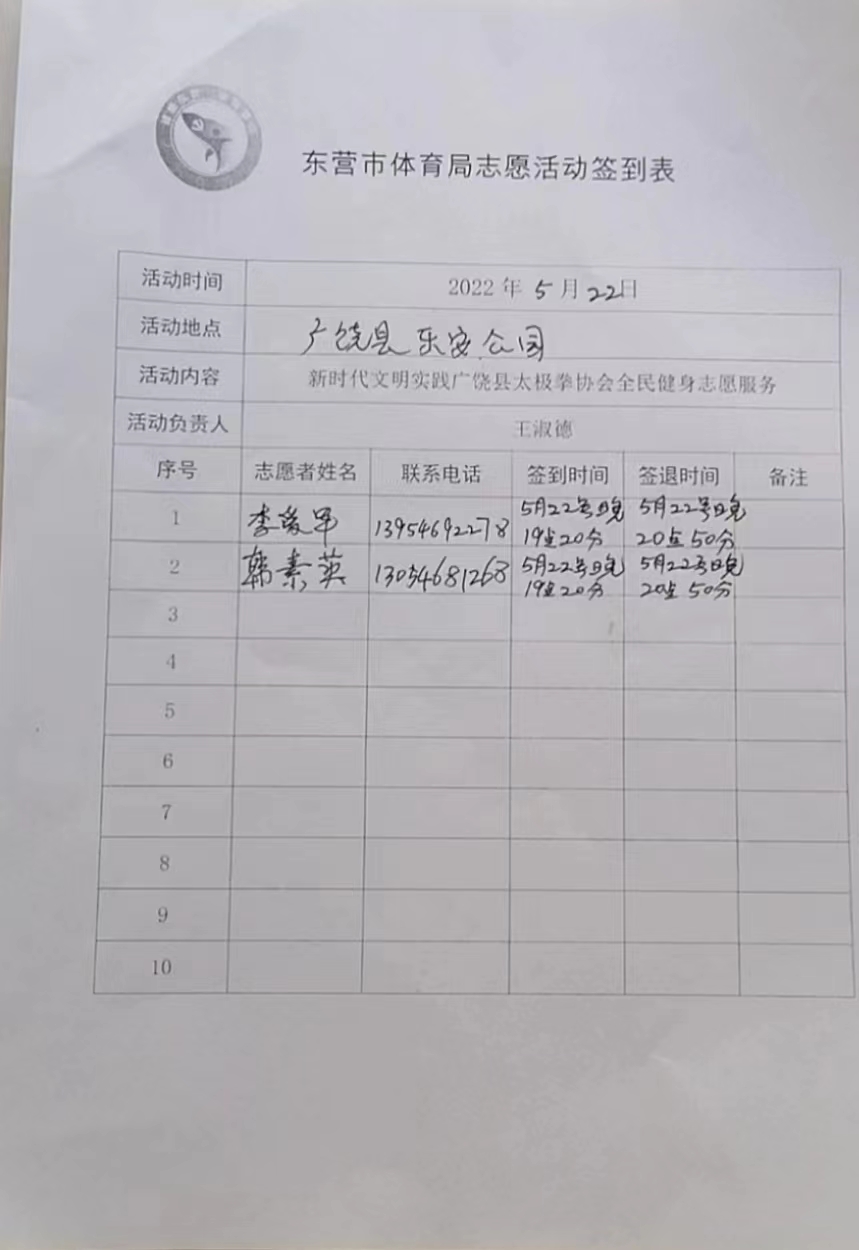 东营市体育局志愿活动签到表
活动时间 2022年5月22日
活动地点 广饶县乐安公园
活动内容 新时代文明实践广饶县太极拳协会全民健身志愿服务
活动负责人 王淑德
序号 志愿者姓名 联系电话 签到时间 签退时间 备注
1 李爱军 13954692278 5月22号晚 5月22号晚
19点20分 20点50分
2 韩素英 13054681268 5月22号晚 5月22号晚
19点20分 20点50分
3
4
5
6
7
8
9
10